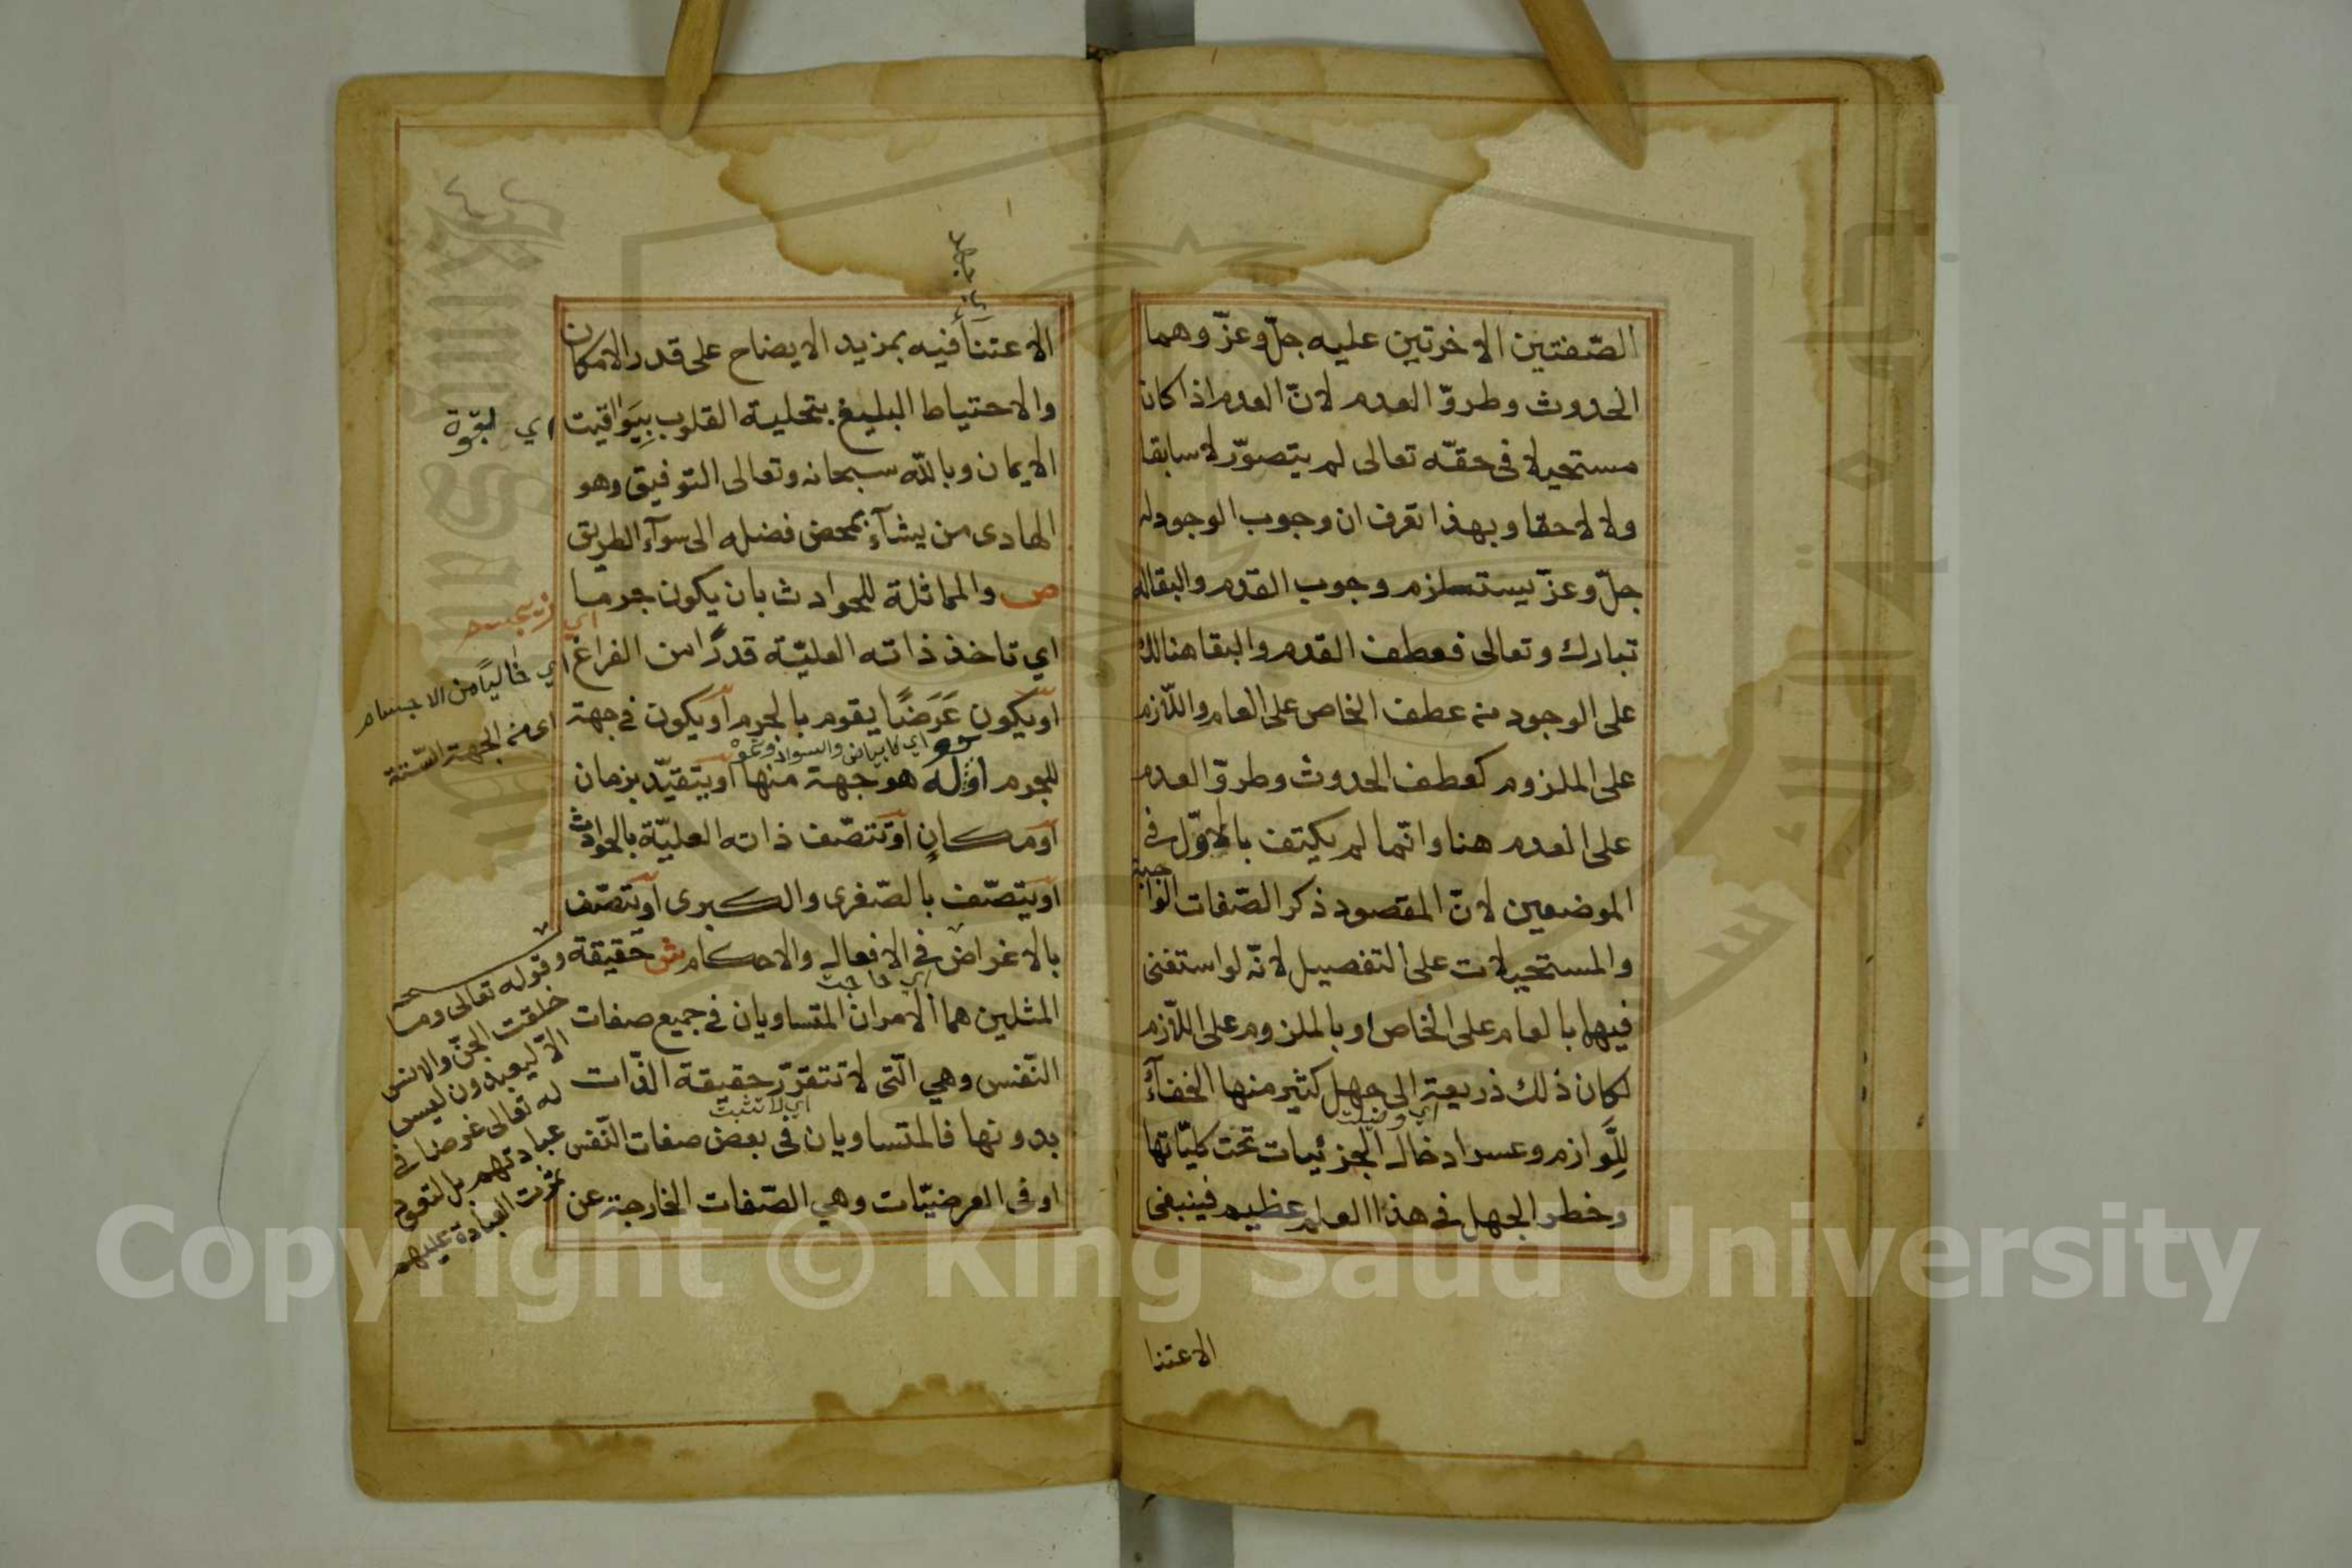 الصّفتين الاخرتين عليه جلّ وعزّ وهما
الحدوث وطروّ العدم لانّ العدم اذا كان
مستحيلا فى حقّه تعالى لم يتصوّر لا سابقا
ولا لاحقا وبهذا تعرف ان وجوب الوجود له
جلّ وعزّ يستلزم وجوب القدم والبقاله
تبارك وتعالى فعطف القدم والبقا هنالك
على الوجود من عطف الخاص على العام واللّازم
على الملزوم كعطف الحدوث وطروّ العدم
على العدم هنا وانّما لم يكتف بالاوّل فى
الموضعين لانّ المقصود ذكر الصّفات الواجبة
والمستحيلات على التفصيل لانّه لو استغنى
فيها بالعام على الخاص او بالملزوم على اللّازم
لكان ذلك ذريعة الى جهل كثير منها الخفآء
اي وضيلت
للّوازم وعسر ادخال الجزئيات تحت كليّاتها
وخطر الجهل فى هذا العلم عظيم فينبغى
الاعتنا
اي جهد
الاعتنَأ فيه بمزيد الايضاح على قدر الامكان
والاحتياط البليغ بتحلية القلوب بِيَوَاقيت
اي لقوة
الايمان وبالله سبحانه وتعالى التوفيق وهو
الهادى من يشآء بمحض فضله الى سوآء الطريق
ص والمماثلة للحوادث بان يكون جرما
اي تاخذ ذاته العليّة قدرًا من الفراغ
اي خاليًا من الاجسام
او يكون عَرَضًا يقوم بالجرم او يكون فى جهة
اي منه الجهة السّتة
اي كا بياض والسواد ونحو
للجرم او له هو جهة منها او يتقيّد بزمان
او مكانٍ او تتصّف ذاته العليّة بالحوادث
او يتصّف بالصّغرى والكبرى او يتصّف
بالاغراض فى الافعال والاحكام ش حقيقة
اي حاجت
المثلين هما الامران المتساويان فى جميع صفات
النّفس وهي الّتى لا تتقرّر حقيقة الذّات
اي لا تثبت
بدونها فالمتساويان فى بعض صفات النّفس
او فى العرضيّات وهي الصّفات الخارجة عن
وقوله تعالى وما
خلقت الجنّ والانس
الّا ليعبدون ليس
له تعالى غرضا فى
عبادتهم بل لتعود
ثمرت العبادة عليهم
Copyright © King Saud University